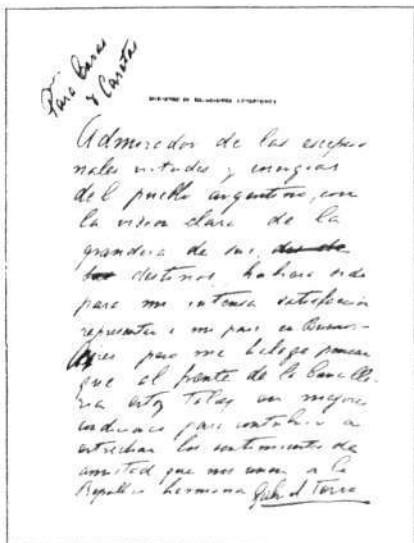 Para Caras
y Caretas
MINISTERIO DE RELACIONES EXTERIORES
Admirador de las excepcio
nales virtudes y energias
del pueblo argentino, con
la vision clara de la
grandeza de sus
destinos, hubiera sido
para mi intensa satisfacción
representar a mi pais en Buenos-
Aires pero me halaga pensar
que al frente de la Cancille-
ria estoy talvez en mejores
condiciones para contribuir a
estrechar los sentimientos de
amistad que nos unen a la
Republica hermana Gabriel Terra